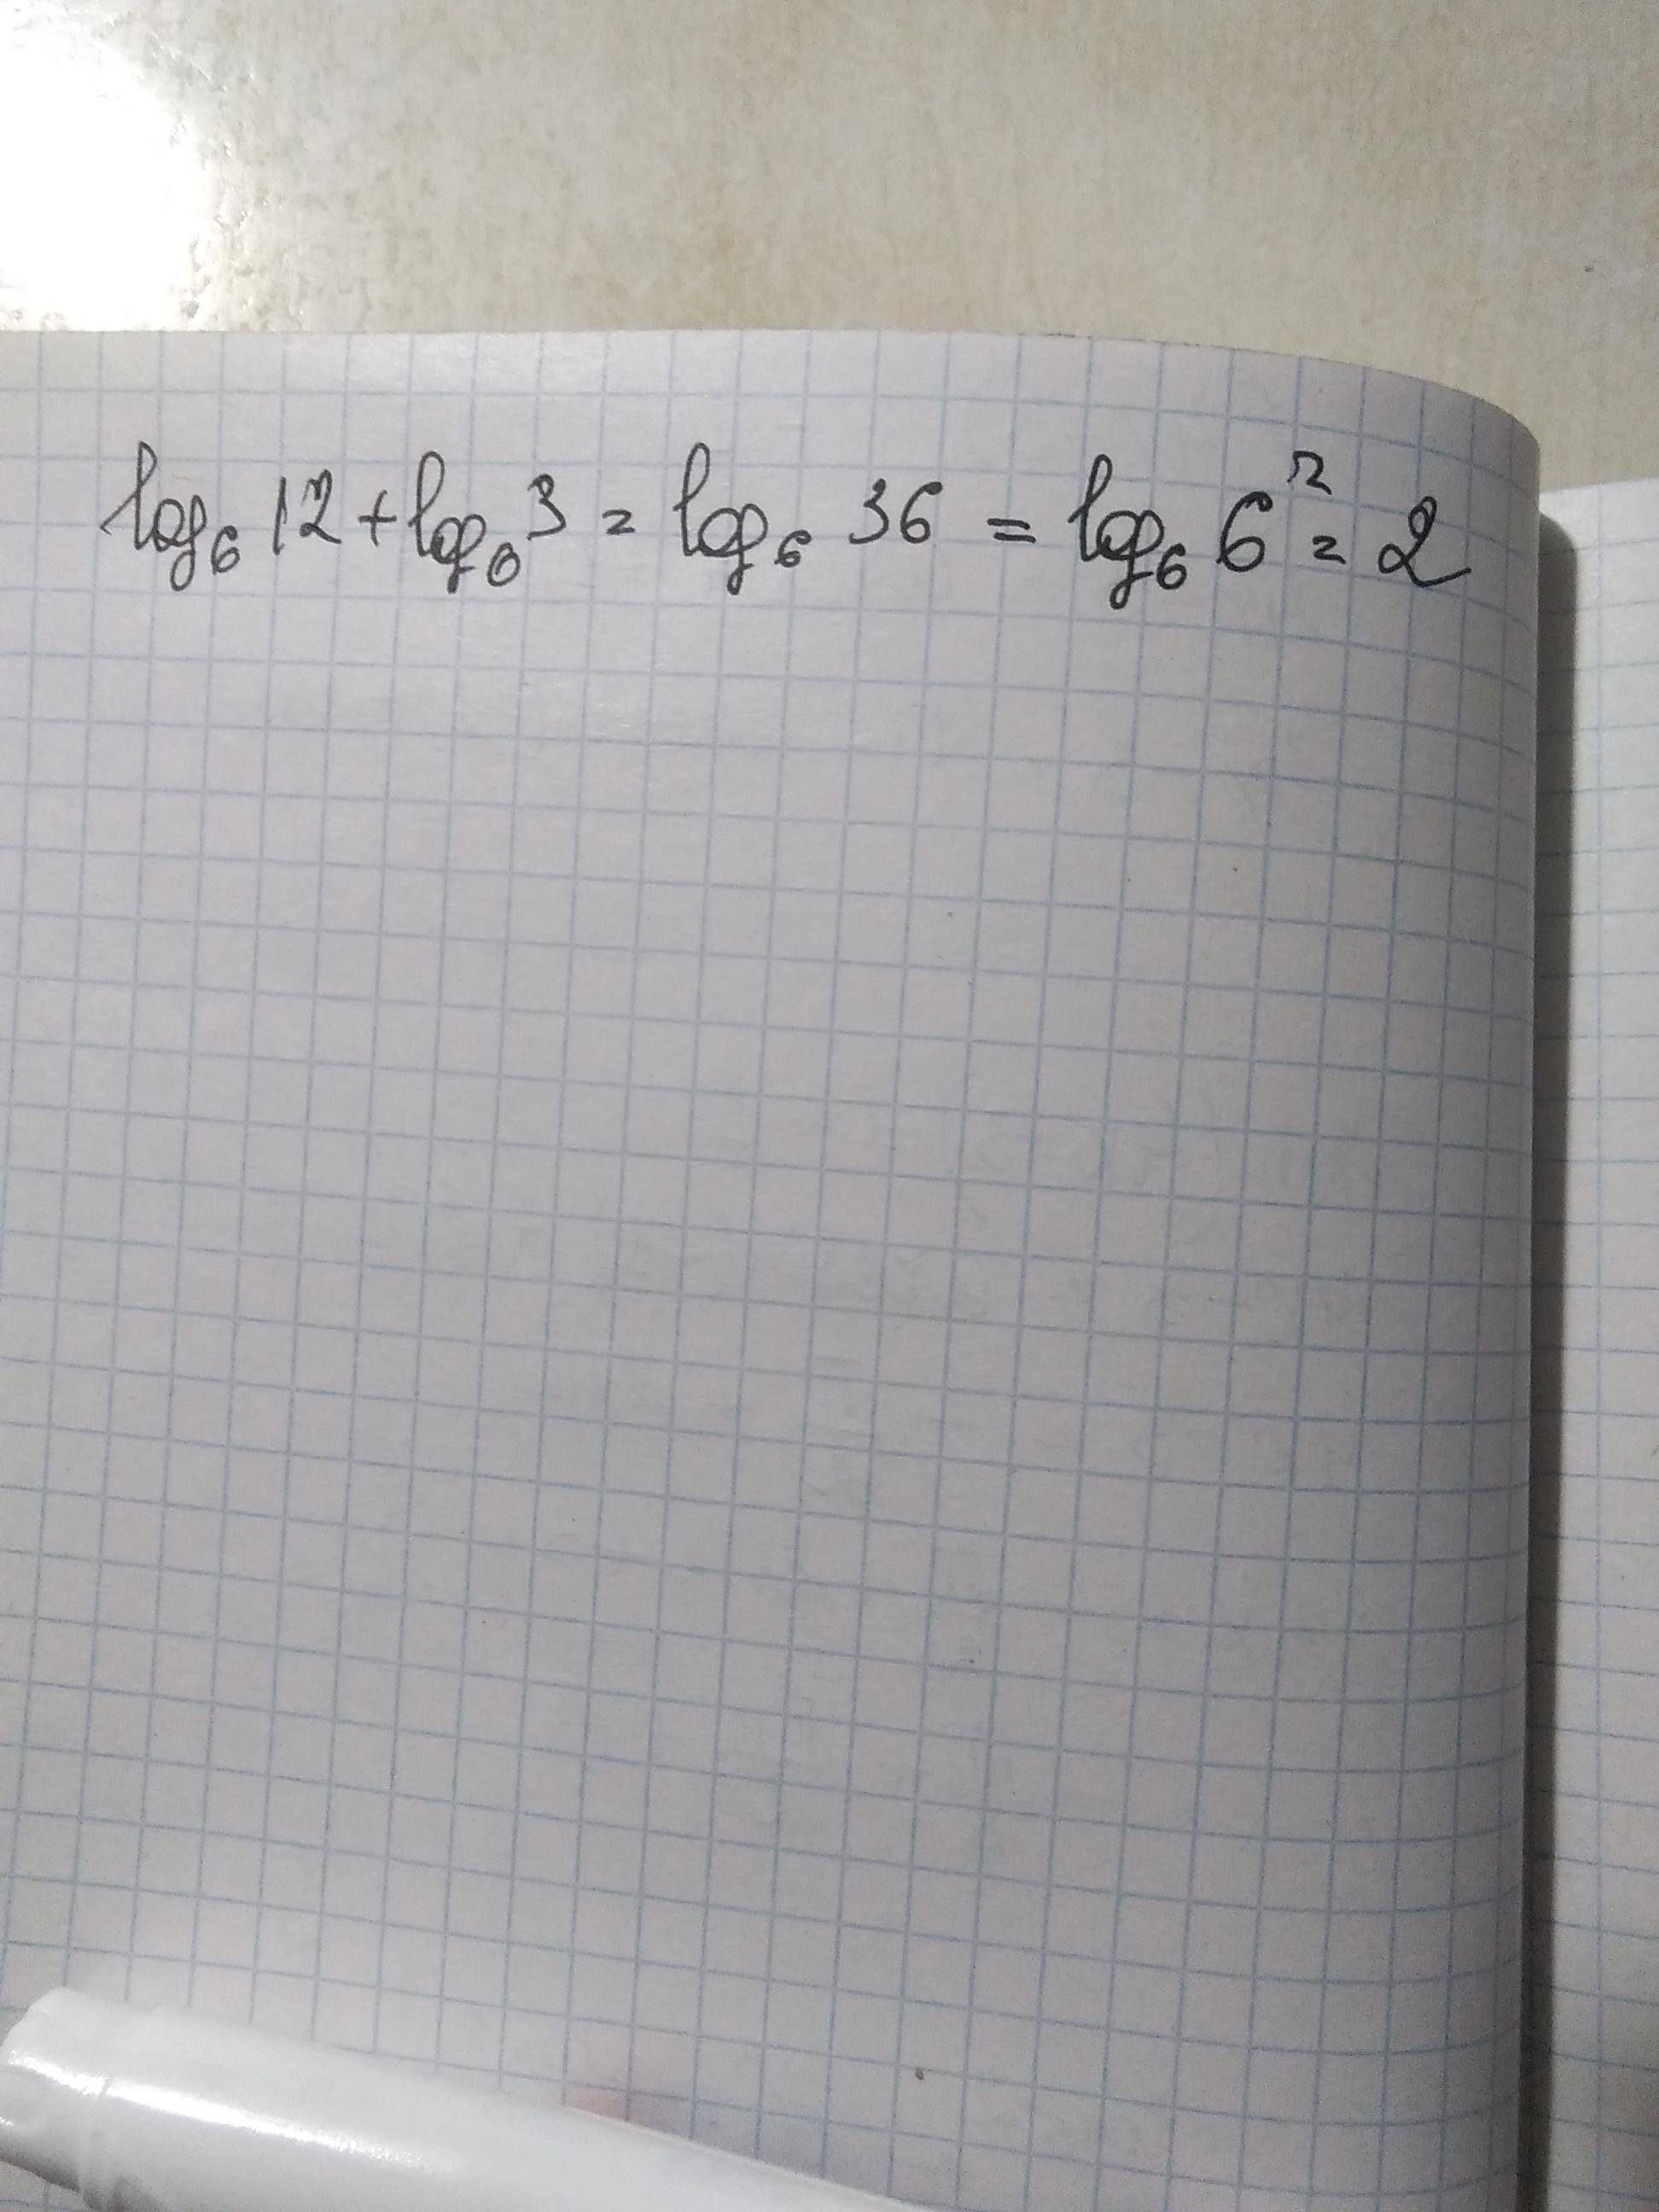 log₆ 12 + log₆ 3 = log₆ 36 = log₆ 6² = 2